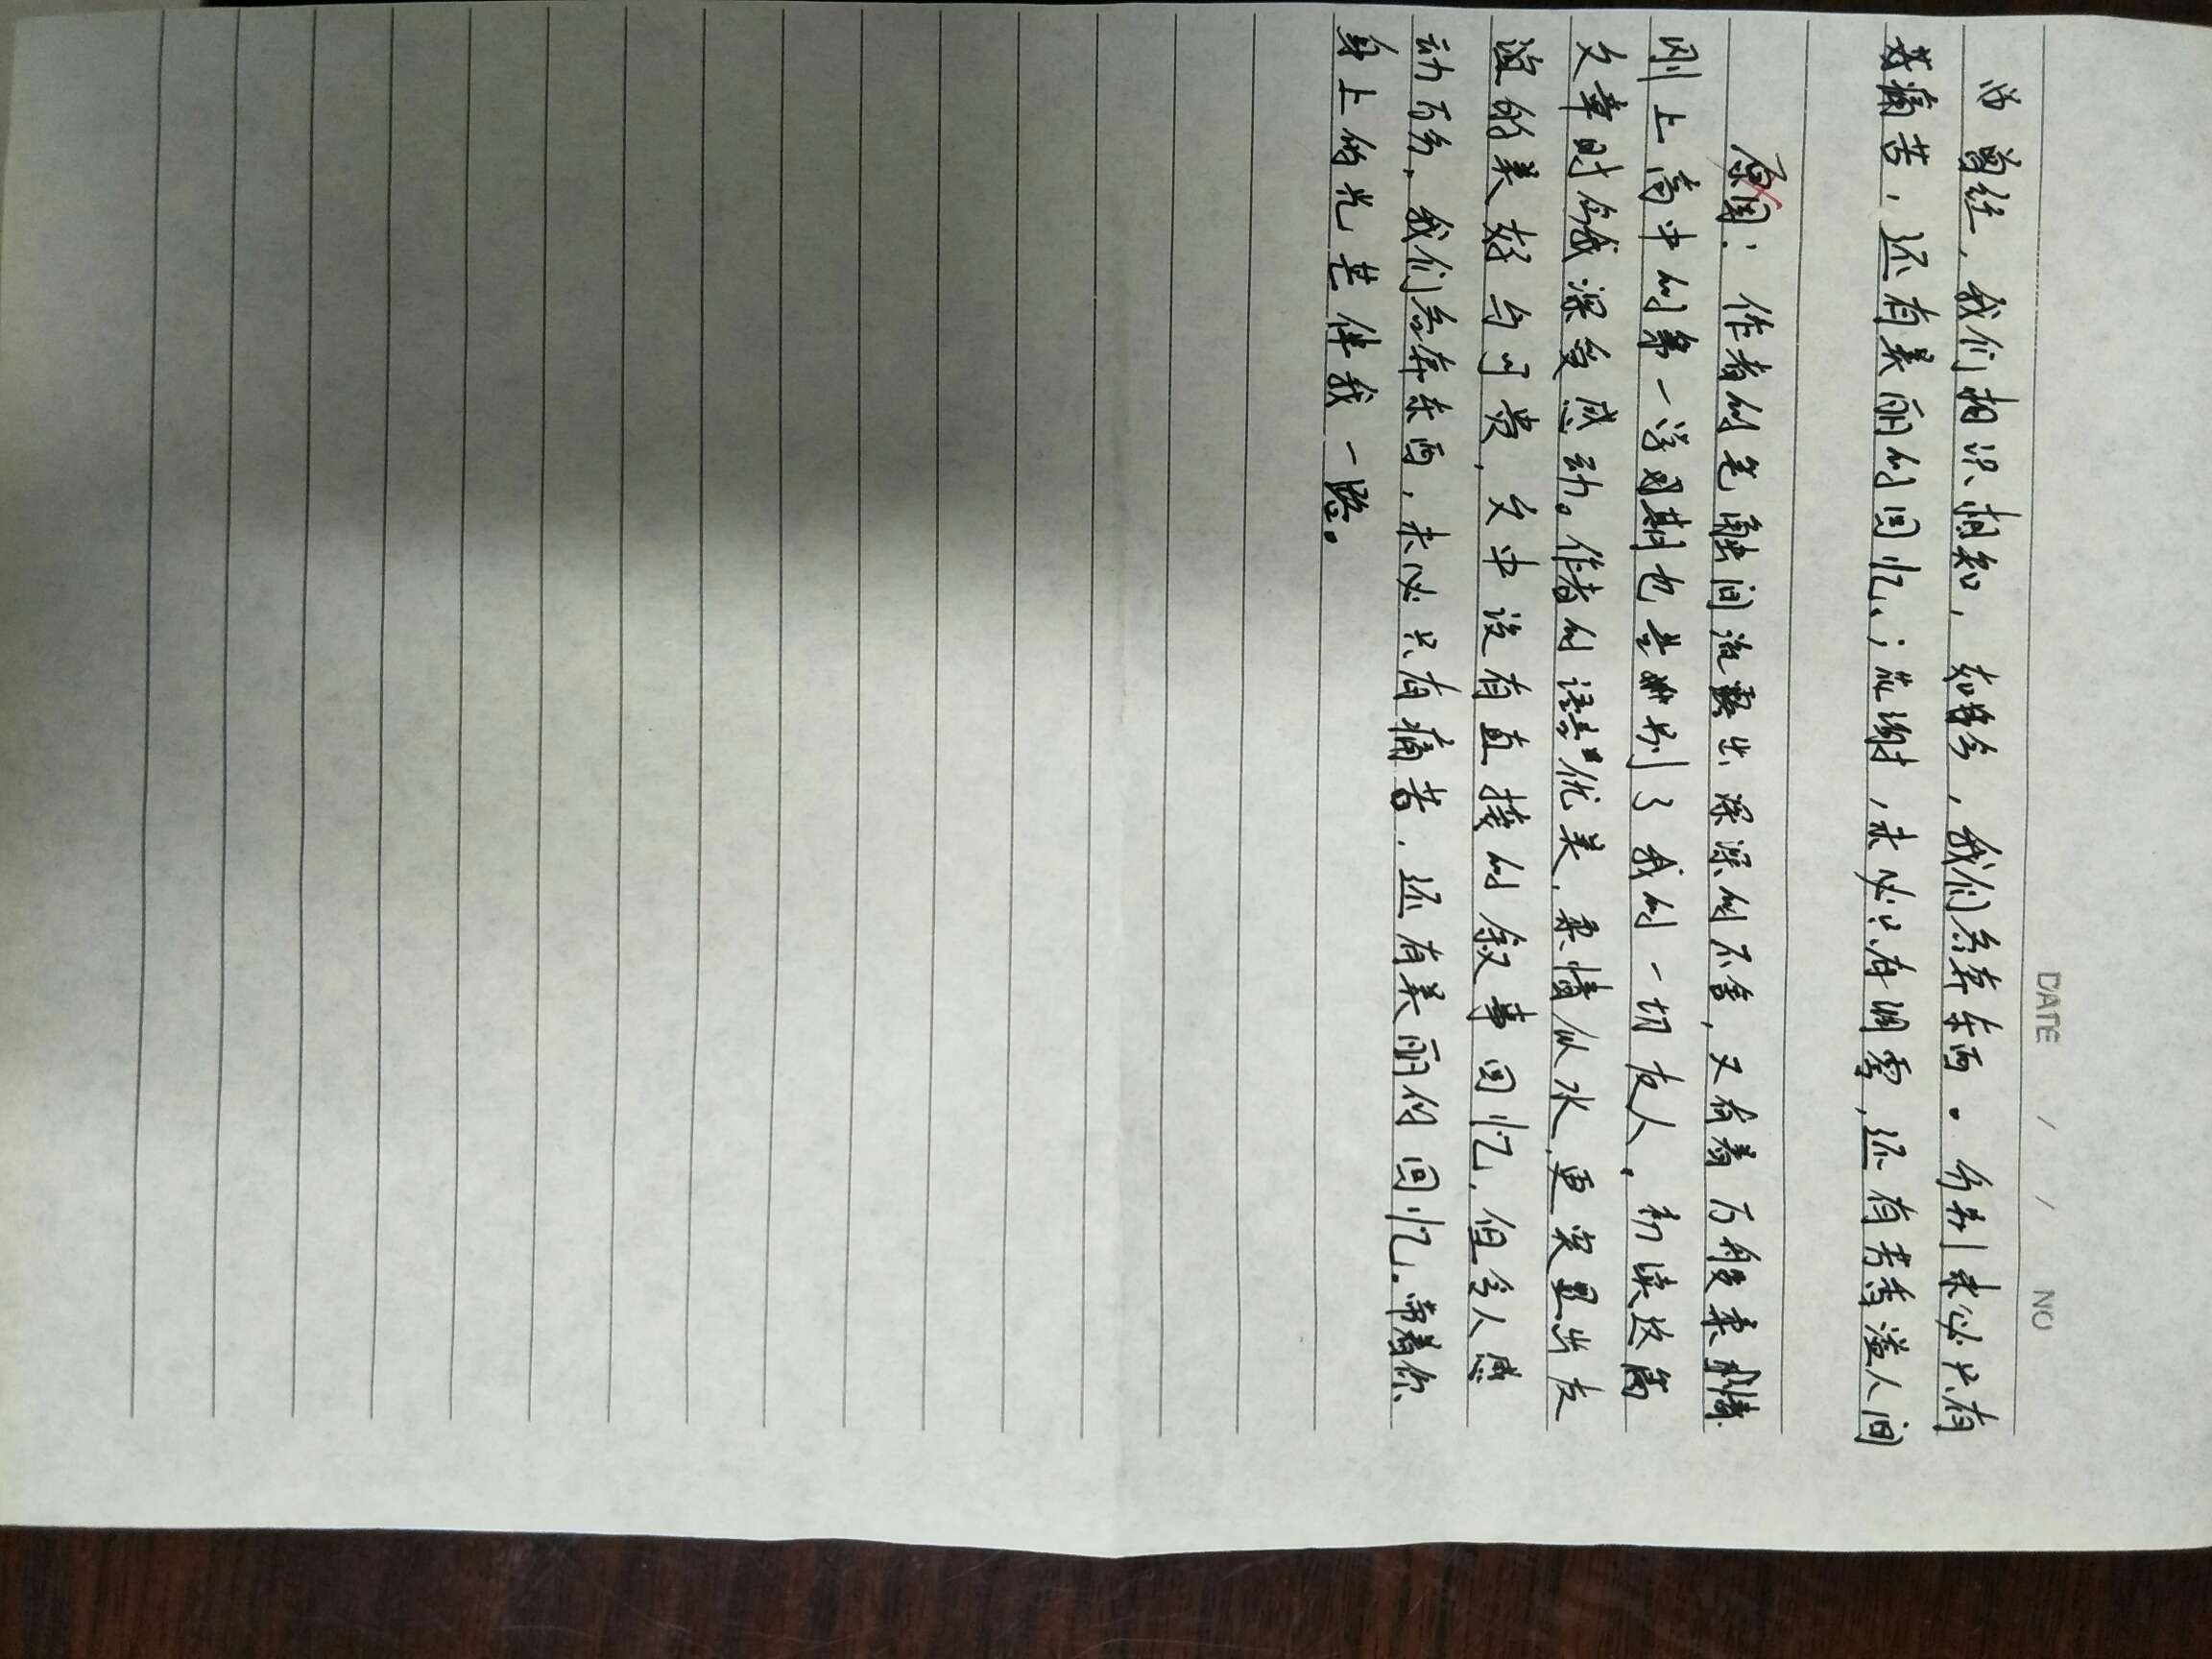 DATE / / NO
曾经,我们相识相知,如今,我们各奔东西。分别未必只有
痛苦,还有美丽的回忆;花谢,未必只有凋零,还有芳香溢人间
原因:作者的笔触间流露出深深的不舍,又有着万般柔情
刚上高中的第一学期也告别了我的一切友人。初读这篇
文章时令我深受感动。作者的语言优美,柔情似水,更突显出友
谊的美好与可贵,文中没有直接的叙事回忆,但令人感
动万分,我们各奔东西,未必只有痛苦,还有美丽的回忆,带着你
身上的光芒伴我一路。